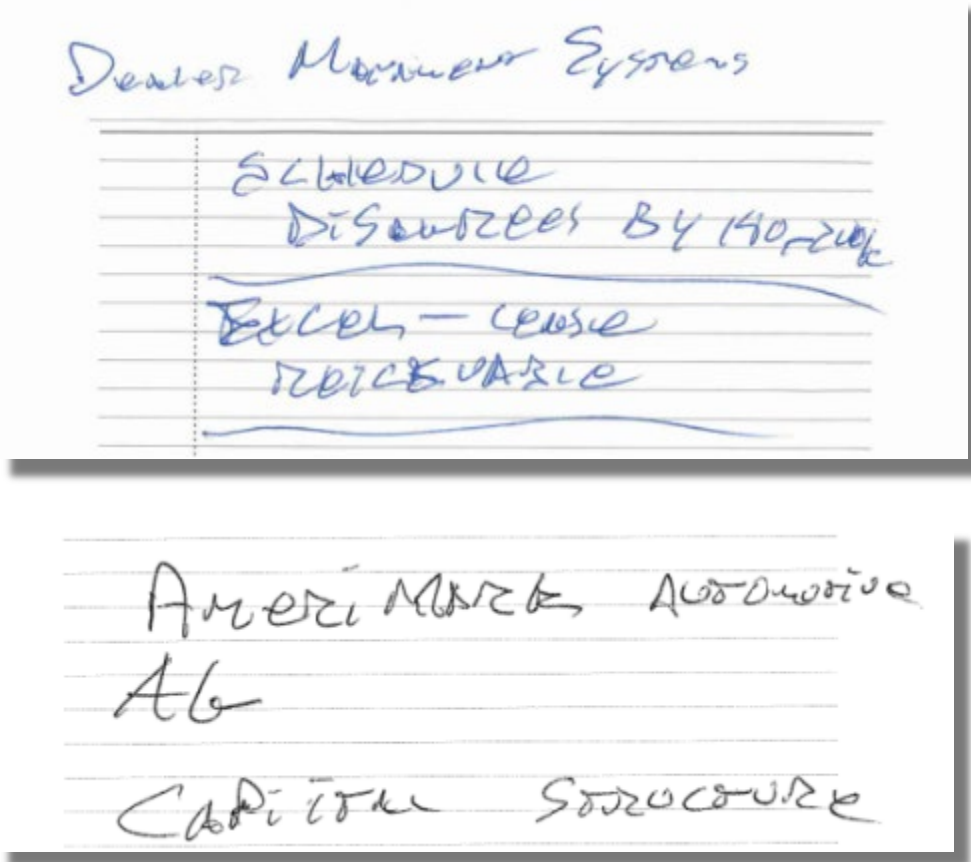 Dealer Systems
Schedule
Disagrees By
Excel – Lease
Receivable
AmeriMark Automotive
AG
Capital Structure